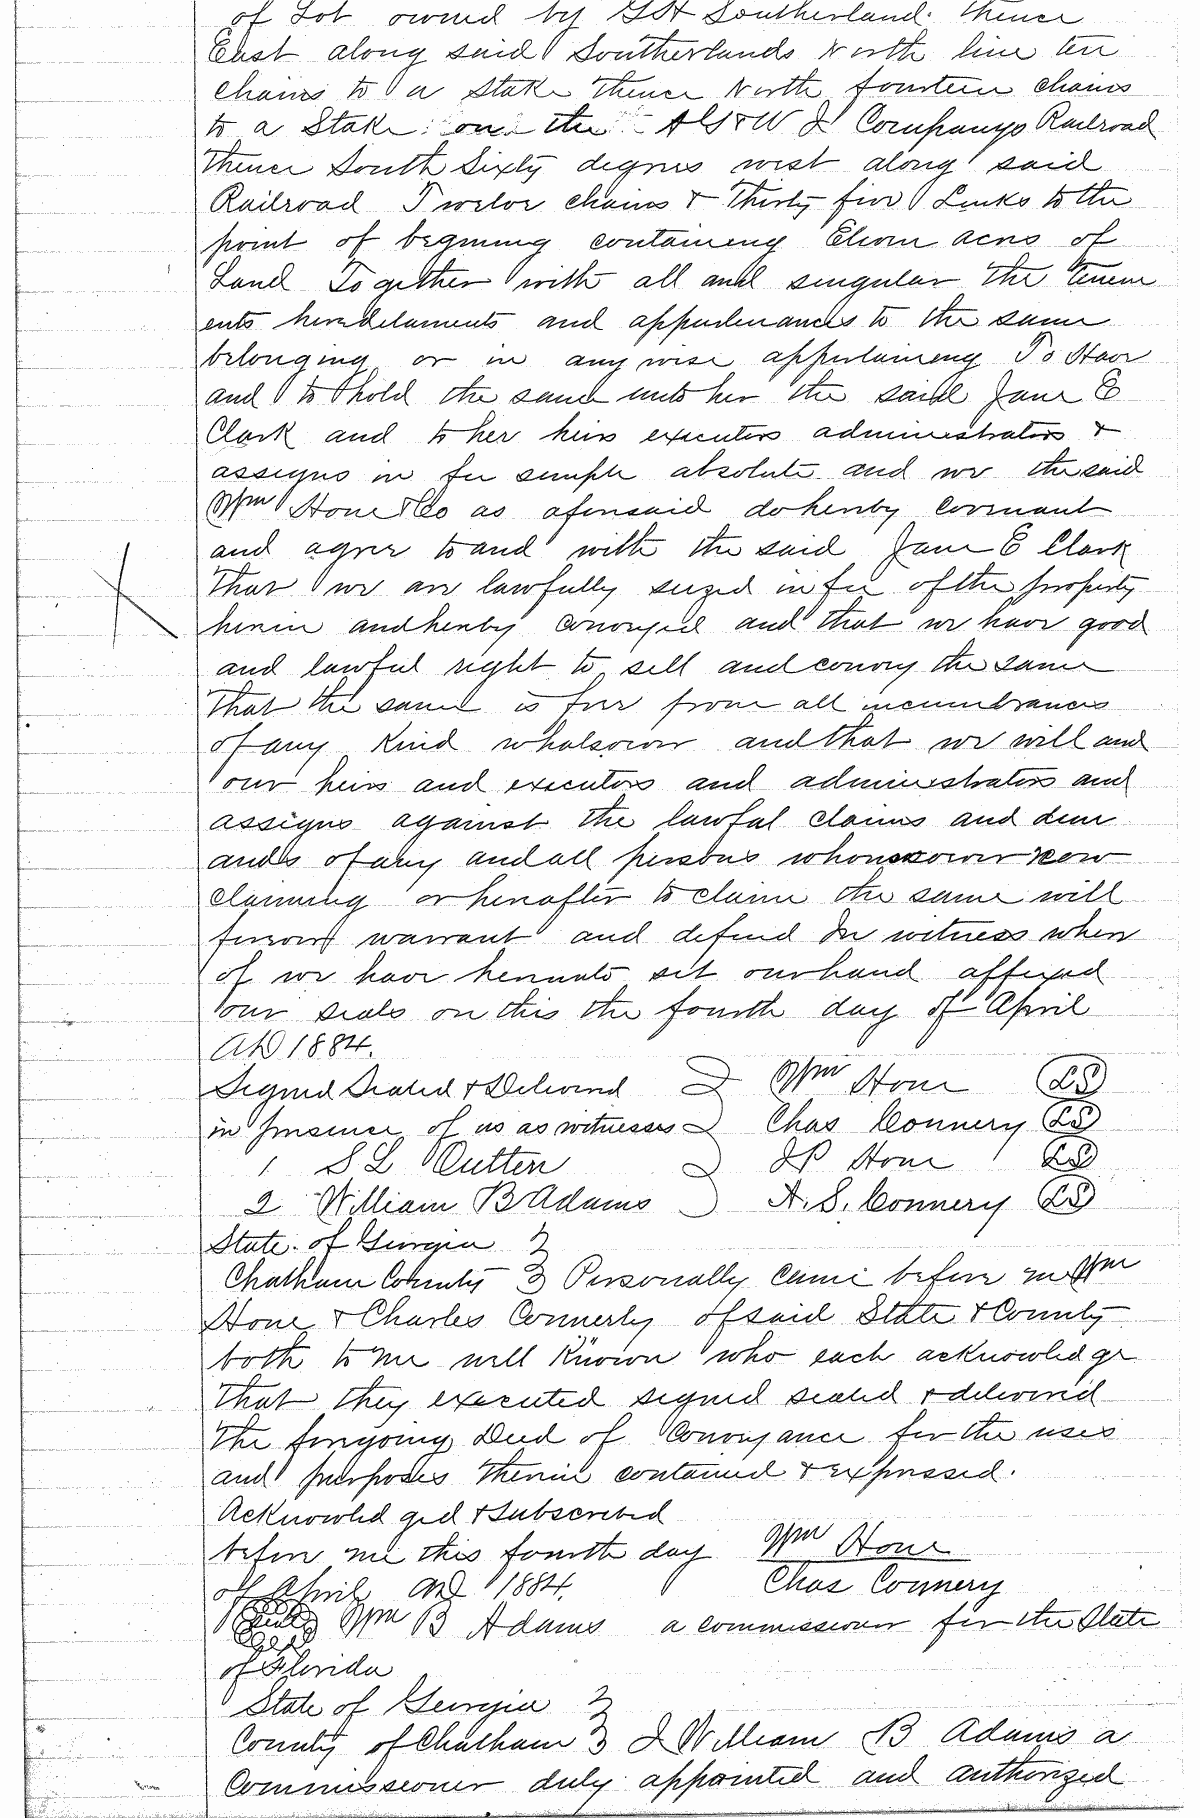 of Lot owned by G H Southerland. thence
East along said Southerlands North line ten
chains to a Stake thence North fourteen chains
to a Stake on the A G & W I Companys Railroad
thence South Sixty degrees west along said
Railroad Twelve chains & Thirty five Links to the
point of begining containing Eleven acres of
Land Together with all and singular the tenem
ents heredetaments and appurtenances to the same
belonging or in any wise appertaining To Have
and to hold the same unto her the said Jane E
Clark and to her heirs executors administrators &
assigns in fee simple absolute and we the said
Wm Hone & Co as aforesaid do hereby covenant
and agree to and with the said Jane E Clark
that we are lawfully seized in fee of the property
herein and hereby conveyed and that we have good
and lawful right to sell and convey the same
that the same is free from all incumbrances
of any Kind whatsoever and that we will and
our heirs and executors and administrators and
assigns against the lawful claims and dem
ands of any and all persons whomsoever now
claiming or hereafter to claim the same will
forever warrant and defend In witness where
of we have hereunto set our hand affixed
our seals on this the fourth day of April
AD 1884.
Signed Sealed & Delivered Wm Hone LS
in presence of us as witnesses Chas Connery LS
1 S L Cutten J P Hone LS
2 William B Adams A. S. Connery LS
State of Georgia
Chatham County Personally came before me Wm
Hone & Charles Connerly of said State & County
both to me well Known who each acknowledge
that they executed signed sealed & delivered
the foregoing Deed of Conveyance for the uses
and purposes therein contained & expressed.
Acknowledged & Subscribed
before me this fourth day Wm Hone
of April AD 1884. Chas Connery
Wm B Adams a commissioner for the State
of Florida
State of Georgia
County of Chatham I William B Adams a
Commissioner duly appointed and authorized